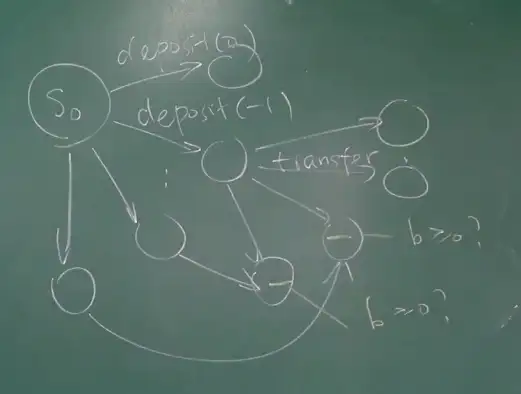 deposit(0)
S₀
deposit(-1)
transfer
b≥0?
b≥0?